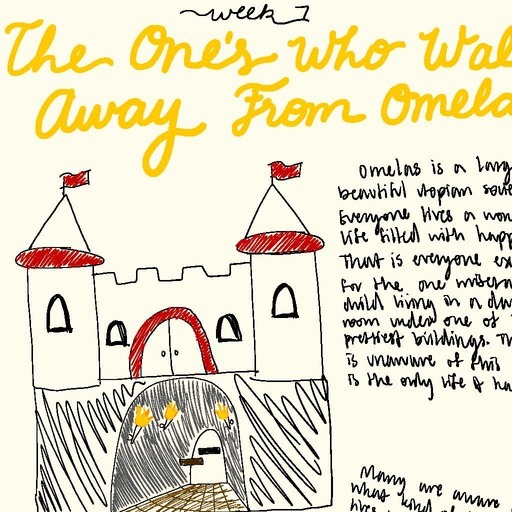 week 7
The One's Who Wal
Away From Omela
Omelas is a larg
beautiful utopian soci
Everyone lives a won
life filled with happ
That is everyone ex
for the one misera
child living in a da
room under one of
prettiest buildings. Th
is unaware of this
is the only life
Many are aware
what kind of
lives